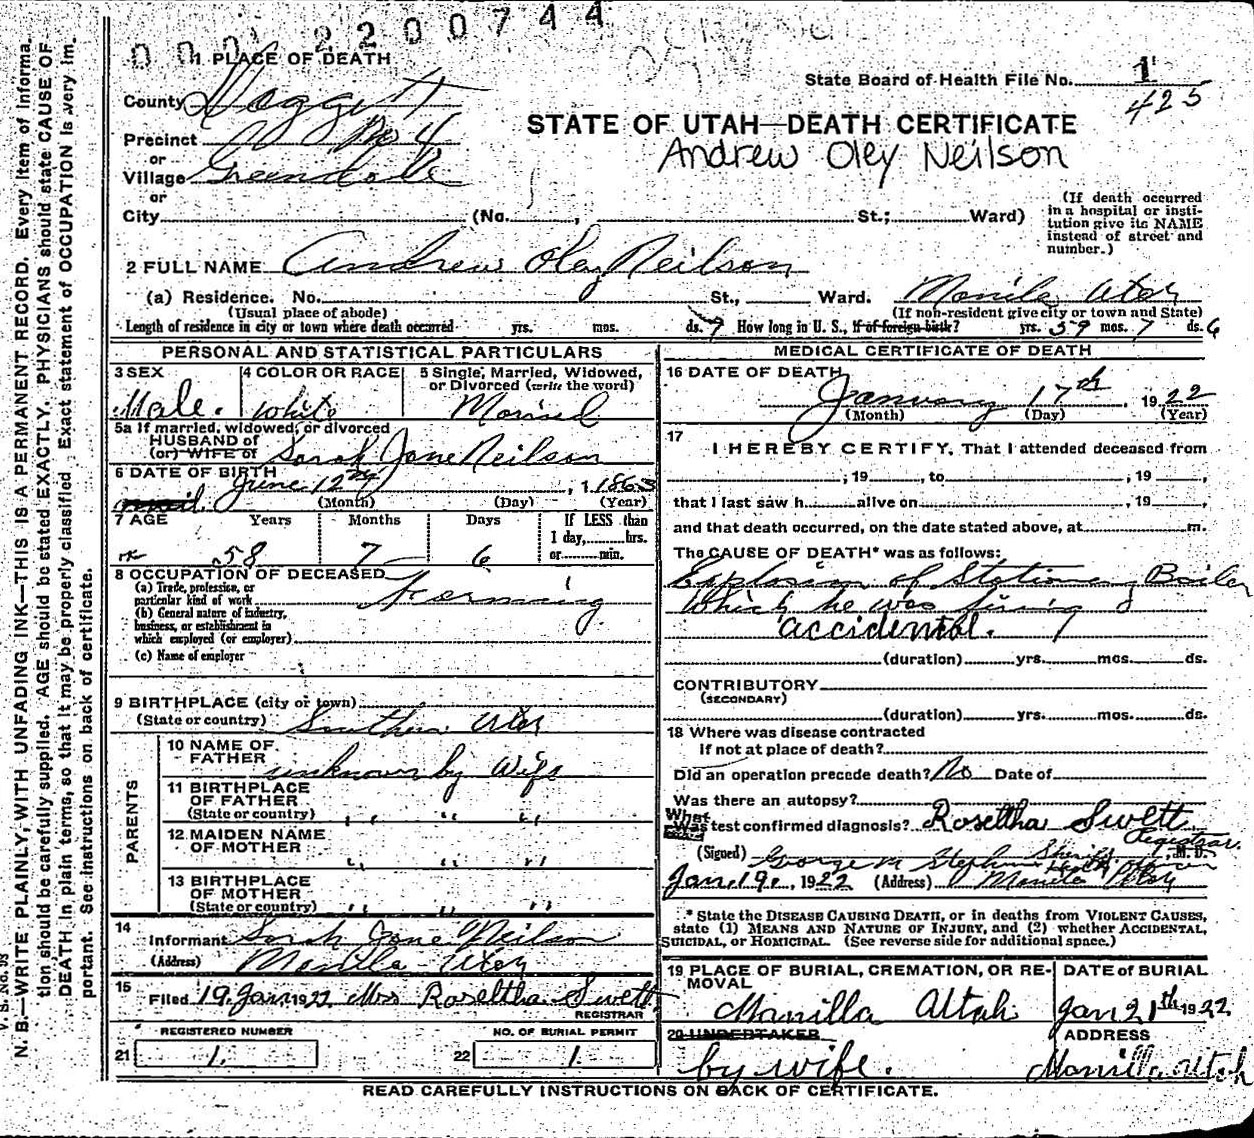 0001 2200744
1 PLACE OF DEATH
State Board of Health File No. 1
425
County Daggett
STATE OF UTAH—DEATH CERTIFICATE
Precinct No 4
Andrew Oley Neilson
or
Village Greendale
or
City (No. , St.; Ward)
(If death occurred in a hospital or insti-
tution give its NAME
instead of street and
number.)
2 FULL NAME Andrew Oley Neilson
(a) Residence. No. St., Ward. Manila Utah
(Usual place of abode) (If non-resident give city or town and State)
Length of residence in city or town where death occurred yrs. mos. ds. 7 How long in U. S., if of foreign birth? yrs. 59 mos. 7 ds. 6
PERSONAL AND STATISTICAL PARTICULARS
3 SEX
Male.
4 COLOR OR RACE
White
5 Single, Married, Widowed,
or Divorced (write the word)
Married
5a If married, widowed, or divorced
HUSBAND of
(or) WIFE of Sarah Jane Neilson
6 DATE OF BIRTH June 12 , 1 1863
(Month) (Day) (Year)
7 AGE Years Months Days If LESS than
1 day, hrs.
or min.
58 7 6
8 OCCUPATION OF DECEASED
(a) Trade, profession, or
particular kind of work Farming
(b) General nature of industry,
business, or establishment in
which employed (or employer)
(c) Name of employer
9 BIRTHPLACE (city or town)
(State or country) Southern Utah
PARENTS
10 NAME OF
FATHER unknown by Wife
11 BIRTHPLACE
OF FATHER
(State or country) " " "
12 MAIDEN NAME
OF MOTHER " " "
13 BIRTHPLACE
OF MOTHER
(State or country) " " "
14
Informant Sarah Jane Neilson
(Address) Manila Utah
15
Filed 19 Jan 1922 Mrs Roseltha Swett
REGISTRAR
REGISTERED NUMBER
21 1.
NO. OF BURIAL PERMIT
22 1.
MEDICAL CERTIFICATE OF DEATH
16 DATE OF DEATH
January 17th , 1922
(Month) (Day) (Year)
17
I HEREBY CERTIFY, That I attended deceased from
, 19 , to , 19 ,
that I last saw h alive on , 19 ,
and that death occurred, on the date stated above, at m.
The CAUSE OF DEATH* was as follows:
Explosion of Stationary Boiler
Which he was firing
accidental.
(duration) yrs. mos. ds.
CONTRIBUTORY
(SECONDARY)
(duration) yrs. mos. ds.
18 Where was disease contracted
If not at place of death?
Did an operation precede death? No Date of
Was there an autopsy?
What test confirmed diagnosis? Roseltha Swett
Registrar.
(Signed) George N Stephens Sheriff , M. D.
Jan. 19, , 1922 (Address) Manila Utah
* State the DISEASE CAUSING DEATH, or in deaths from VIOLENT CAUSES,
state (1) MEANS AND NATURE OF INJURY, and (2) whether ACCIDENTAL,
SUICIDAL, or HOMICIDAL. (See reverse side for additional space.)
19 PLACE OF BURIAL, CREMATION, OR RE-
MOVAL
Manilla Utah
DATE of BURIAL
Jan 21th 1922
20 UNDERTAKER
by wife.
ADDRESS
Manilla Utah
READ CAREFULLY INSTRUCTIONS ON BACK OF CERTIFICATE.
V. S. No. 98
N. B.—WRITE PLAINLY, WITH UNFADING INK—THIS IS A PERMANENT RECORD. Every item of informa-
tion should be carefully supplied. AGE should be stated EXACTLY. PHYSICIANS should state CAUSE OF
DEATH in plain terms, so that it may be properly classified. Exact statement of OCCUPATION is very im-
portant. See instructions on back of certificate.